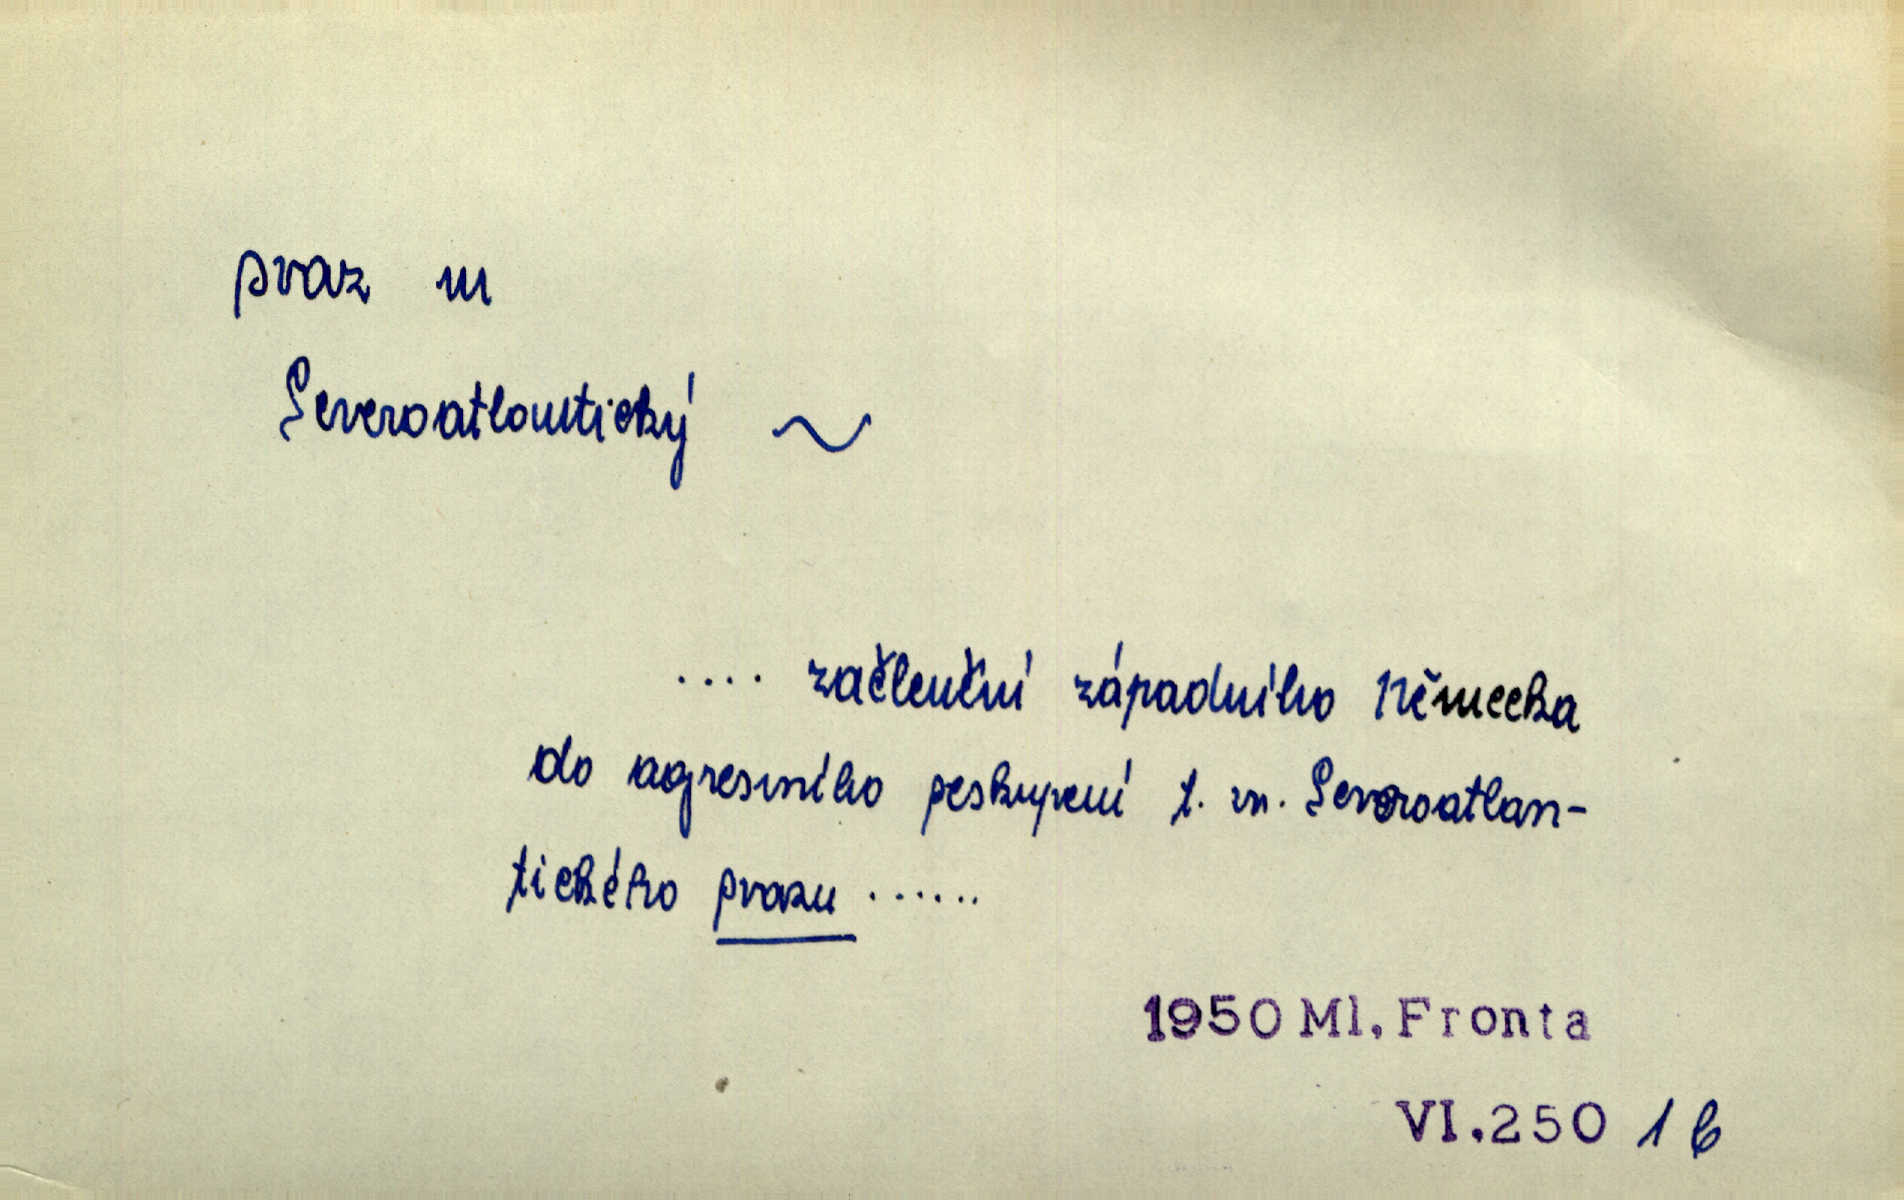 svaz m
Severoatlantický ~
.... začlenění západního Německa
do agresivního seskupení t. zn. Severoatlan-
tického svazu ......
1950 Ml. Fronta
VI.250 1 b